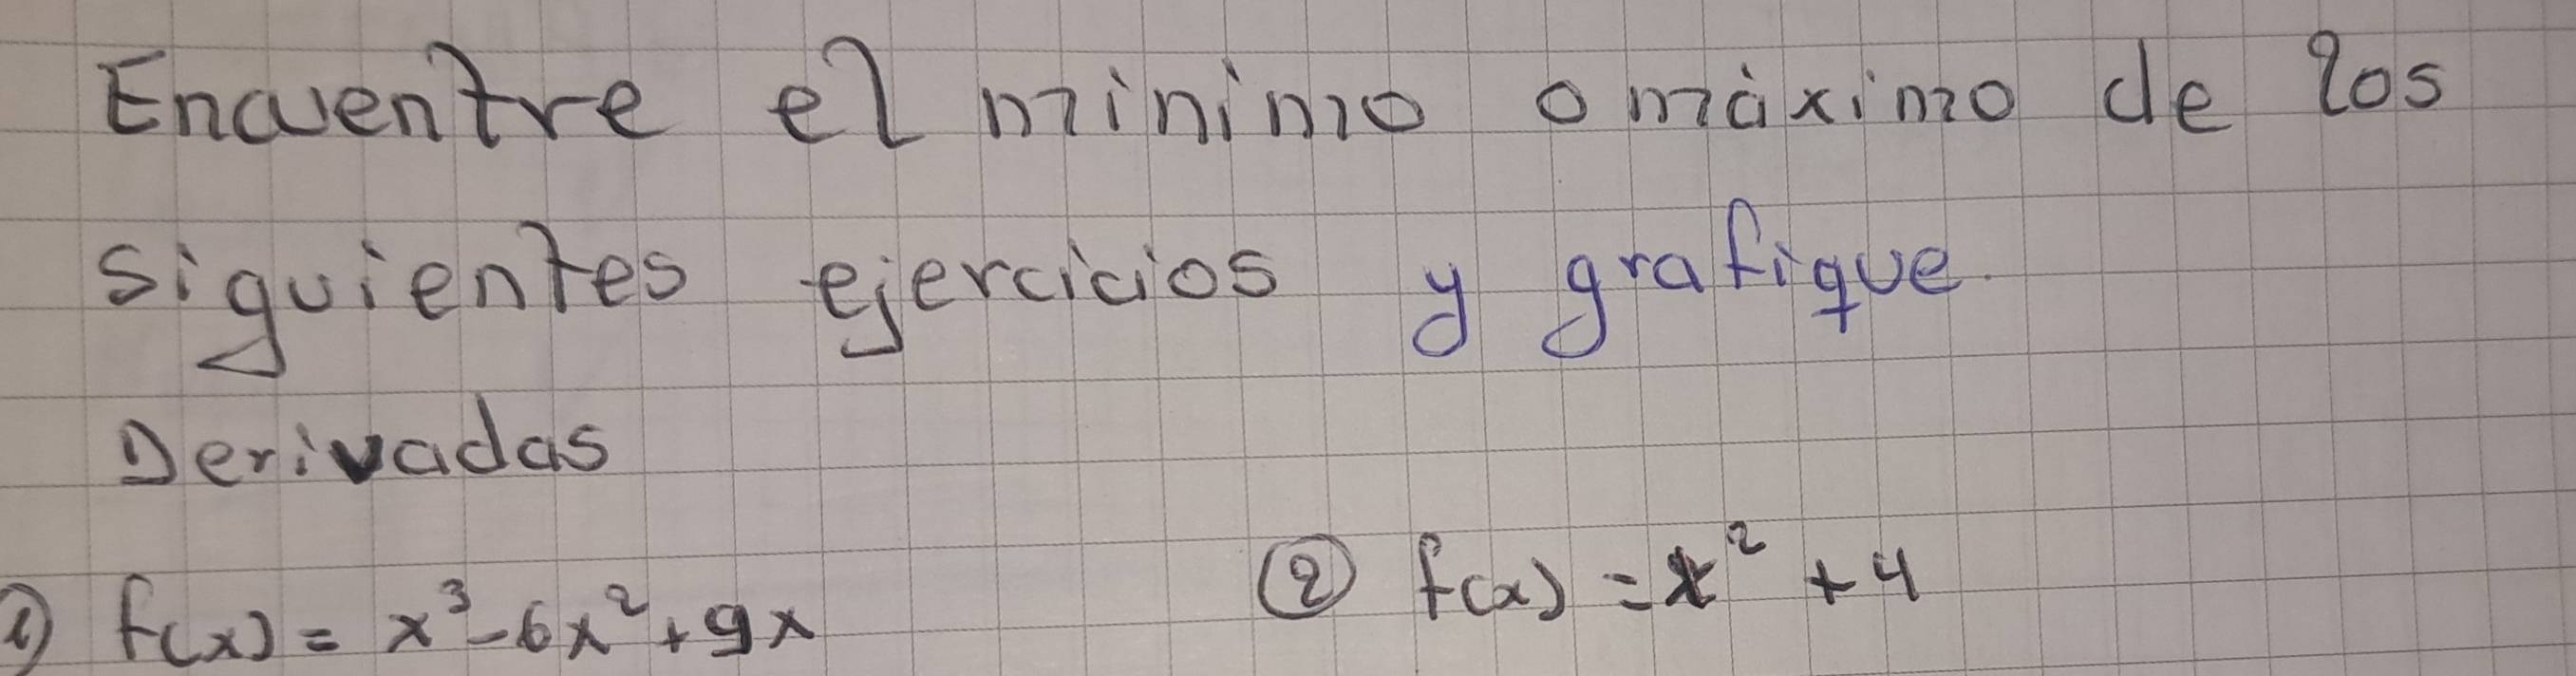 Encuentre el minimo o máximo de los
siguientes ejercicios y grafique.
Derivadas
1) f(x) = x³-6x²+9x
② f(x) = x² + 4